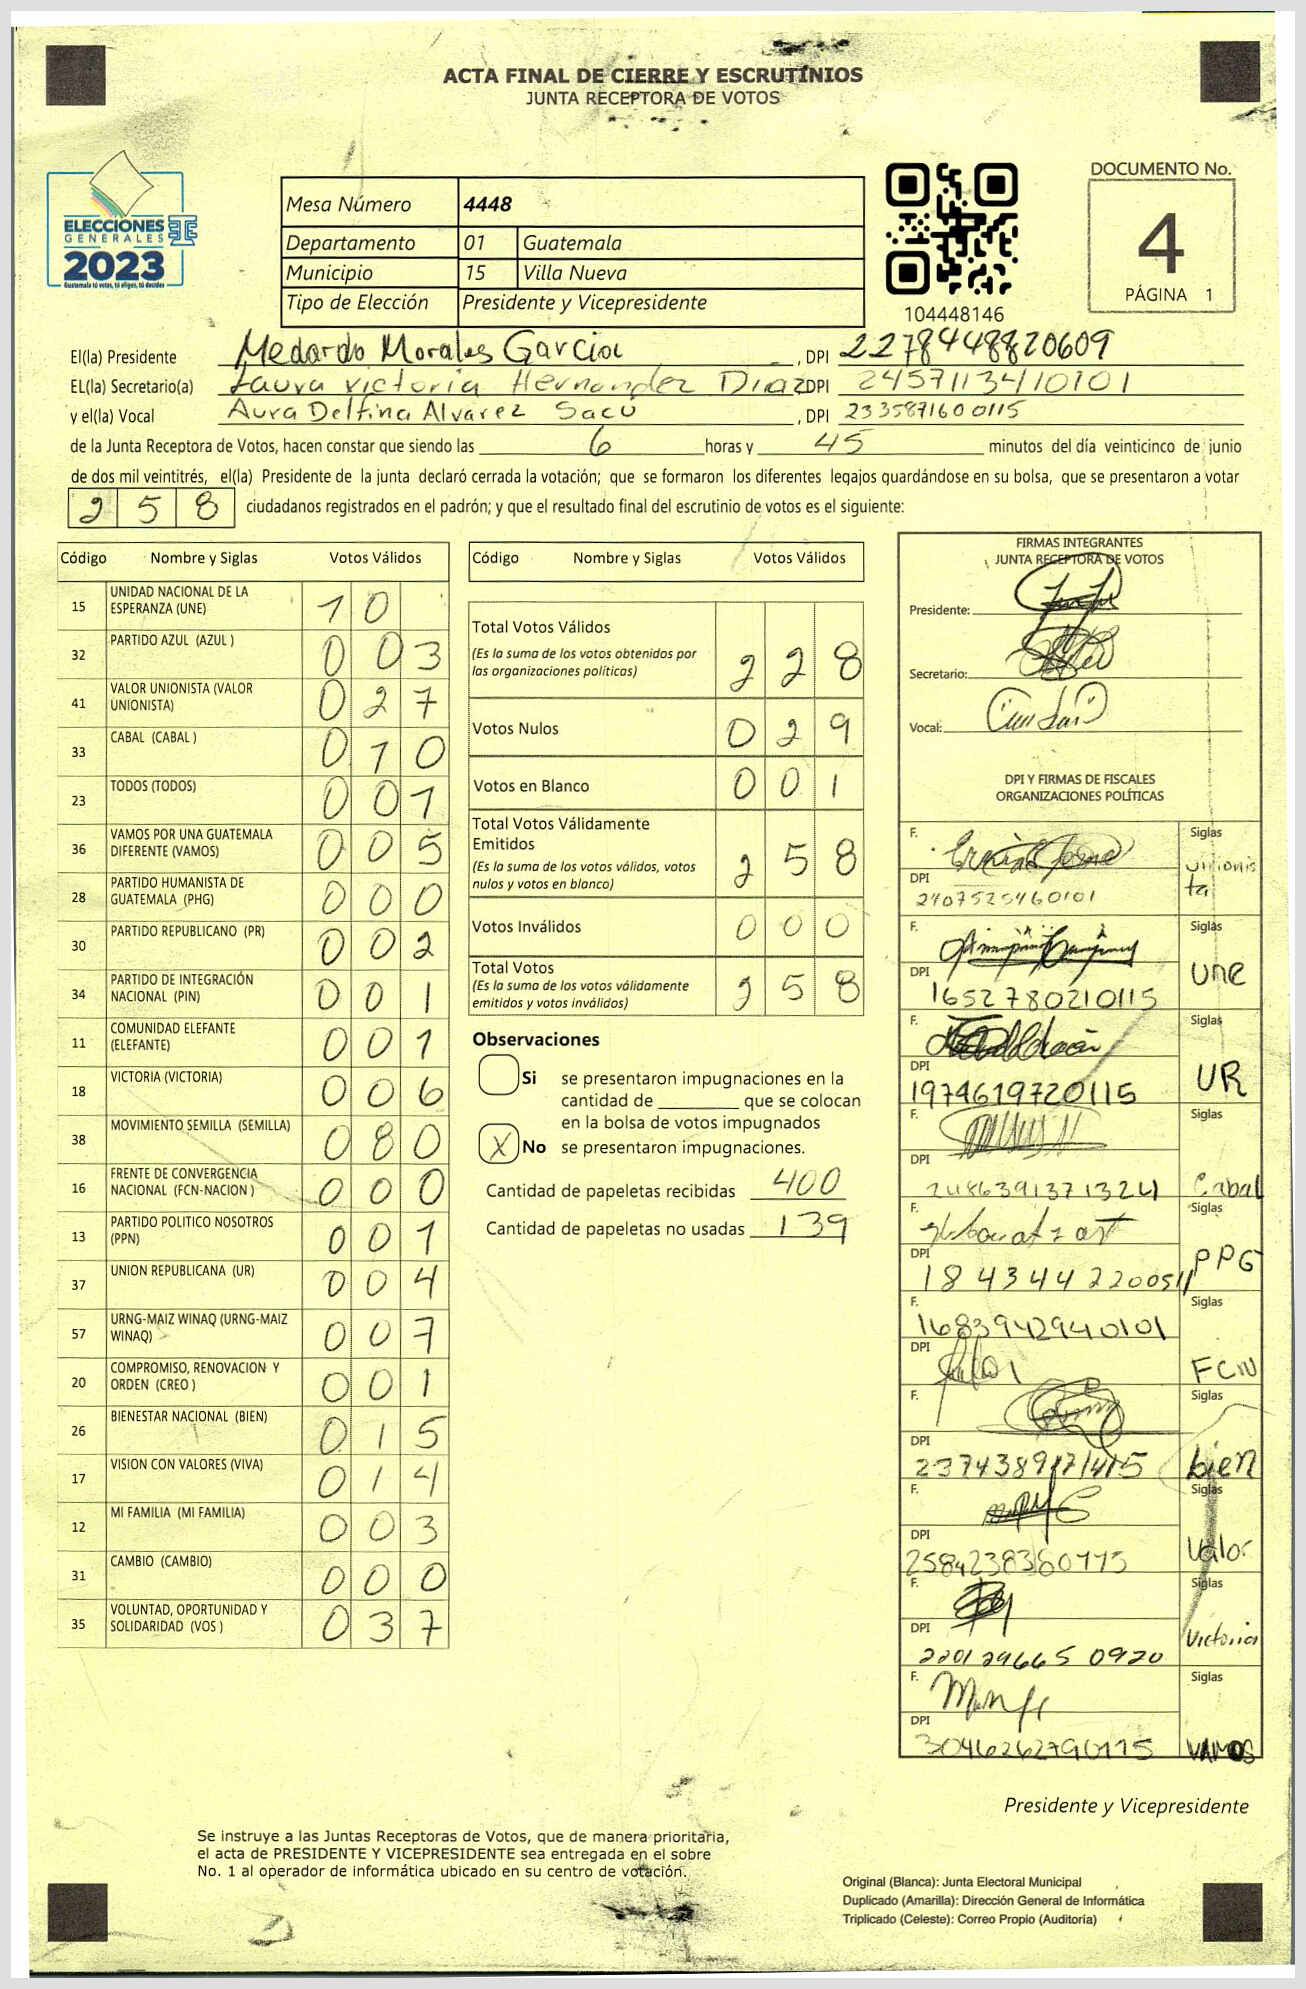 ACTA FINAL DE CIERRE Y ESCRUTINIOS
JUNTA RECEPTORA DE VOTOS
ELECCIONES
GENERALES
2023
Guatemala tú votas, tú eliges, tú decides
Mesa Número 4448
Departamento 01 Guatemala
Municipio 15 Villa Nueva
Tipo de Elección Presidente y Vicepresidente
104448146
DOCUMENTO No.
4
PÁGINA 1
El(la) Presidente Medardo Morales Garcia, DPI 2278448820609
EL(la) Secretario(a) Laura victoria Hernandez Diaz DPI 2457113410101
y el(la) Vocal Aura Delfina Alvarez Sacú, DPI 2335871600115
de la Junta Receptora de Votos, hacen constar que siendo las 6 horas y 45 minutos del día veinticinco de junio
de dos mil veintitrés, el(la) Presidente de la junta declaró cerrada la votación; que se formaron los diferentes legajos guardándose en su bolsa, que se presentaron a votar
258 ciudadanos registrados en el padrón; y que el resultado final del escrutinio de votos es el siguiente:
Código Nombre y Siglas Votos Válidos
15 UNIDAD NACIONAL DE LA ESPERANZA (UNE) 10
32 PARTIDO AZUL (AZUL ) 003
41 VALOR UNIONISTA (VALOR UNIONISTA) 027
33 CABAL (CABAL ) 010
23 TODOS (TODOS) 001
36 VAMOS POR UNA GUATEMALA DIFERENTE (VAMOS) 005
28 PARTIDO HUMANISTA DE GUATEMALA (PHG) 000
30 PARTIDO REPUBLICANO (PR) 002
34 PARTIDO DE INTEGRACIÓN NACIONAL (PIN) 001
11 COMUNIDAD ELEFANTE (ELEFANTE) 001
18 VICTORIA (VICTORIA) 006
38 MOVIMIENTO SEMILLA (SEMILLA) 080
16 FRENTE DE CONVERGENCIA NACIONAL (FCN-NACION ) 000
13 PARTIDO POLITICO NOSOTROS (PPN) 001
37 UNION REPUBLICANA (UR) 004
57 URNG-MAIZ WINAQ (URNG-MAIZ WINAQ) 007
20 COMPROMISO, RENOVACION Y ORDEN (CREO ) 001
26 BIENESTAR NACIONAL (BIEN) 015
17 VISION CON VALORES (VIVA) 014
12 MI FAMILIA (MI FAMILIA) 003
31 CAMBIO (CAMBIO) 000
35 VOLUNTAD, OPORTUNIDAD Y SOLIDARIDAD (VOS ) 037
Código Nombre y Siglas Votos Válidos
Total Votos Válidos 228
(Es la suma de los votos obtenidos por
las organizaciones políticas)
Votos Nulos 029
Votos en Blanco 001
Total Votos Válidamente
Emitidos 258
(Es la suma de los votos válidos, votos
nulos y votos en blanco)
Votos Inválidos 000
Total Votos 258
(Es la suma de los votos válidamente
emitidos y votos inválidos)
Observaciones
Si se presentaron impugnaciones en la
cantidad de ________ que se colocan
en la bolsa de votos impugnados
X No se presentaron impugnaciones.
Cantidad de papeletas recibidas 400
Cantidad de papeletas no usadas 139
FIRMAS INTEGRANTES
JUNTA RECEPTORA DE VOTOS
Presidente:
Secretario:
Vocal:
DPI Y FIRMAS DE FISCALES
ORGANIZACIONES POLÍTICAS
F. Siglas Unionista
DPI 2407525460101
F. Siglas Une
DPI 1652780210115
F. Siglas UR
DPI 1974619720115
F. Siglas Cabal
DPI 2486391371324
F. Siglas PPG
DPI 1843442200511
F. 1683942940101 Siglas FCN
DPI
F. Siglas bien
DPI
F. Siglas Valor
DPI 2584238360115
F. Siglas Victoria
DPI 2201296650920
F. Siglas VAMOS
DPI 3046262790115
Presidente y Vicepresidente
Se instruye a las Juntas Receptoras de Votos, que de manera prioritaria,
el acta de PRESIDENTE Y VICEPRESIDENTE sea entregada en el sobre
No. 1 al operador de informática ubicado en su centro de votación.
Original (Blanca): Junta Electoral Municipal
Duplicado (Amarilla): Dirección General de Informática
Triplicado (Celeste): Correo Propio (Auditoría)